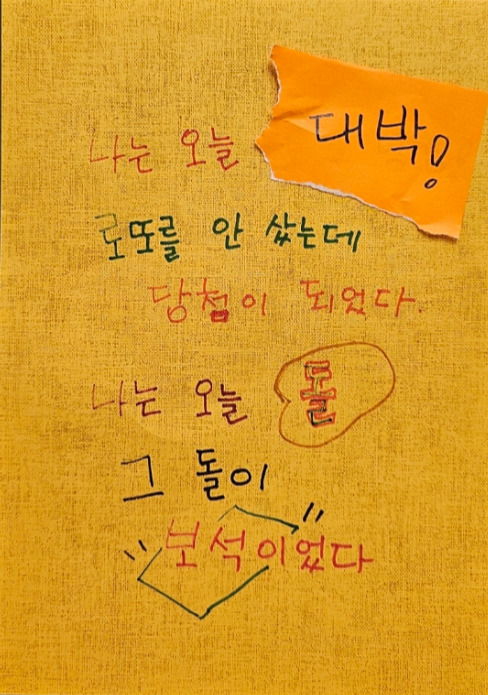 나는 오늘 대박!
로또를 안 샀는데
당첨이 되었다.
나는 오늘 돌
그 돌이
"보석이었다"